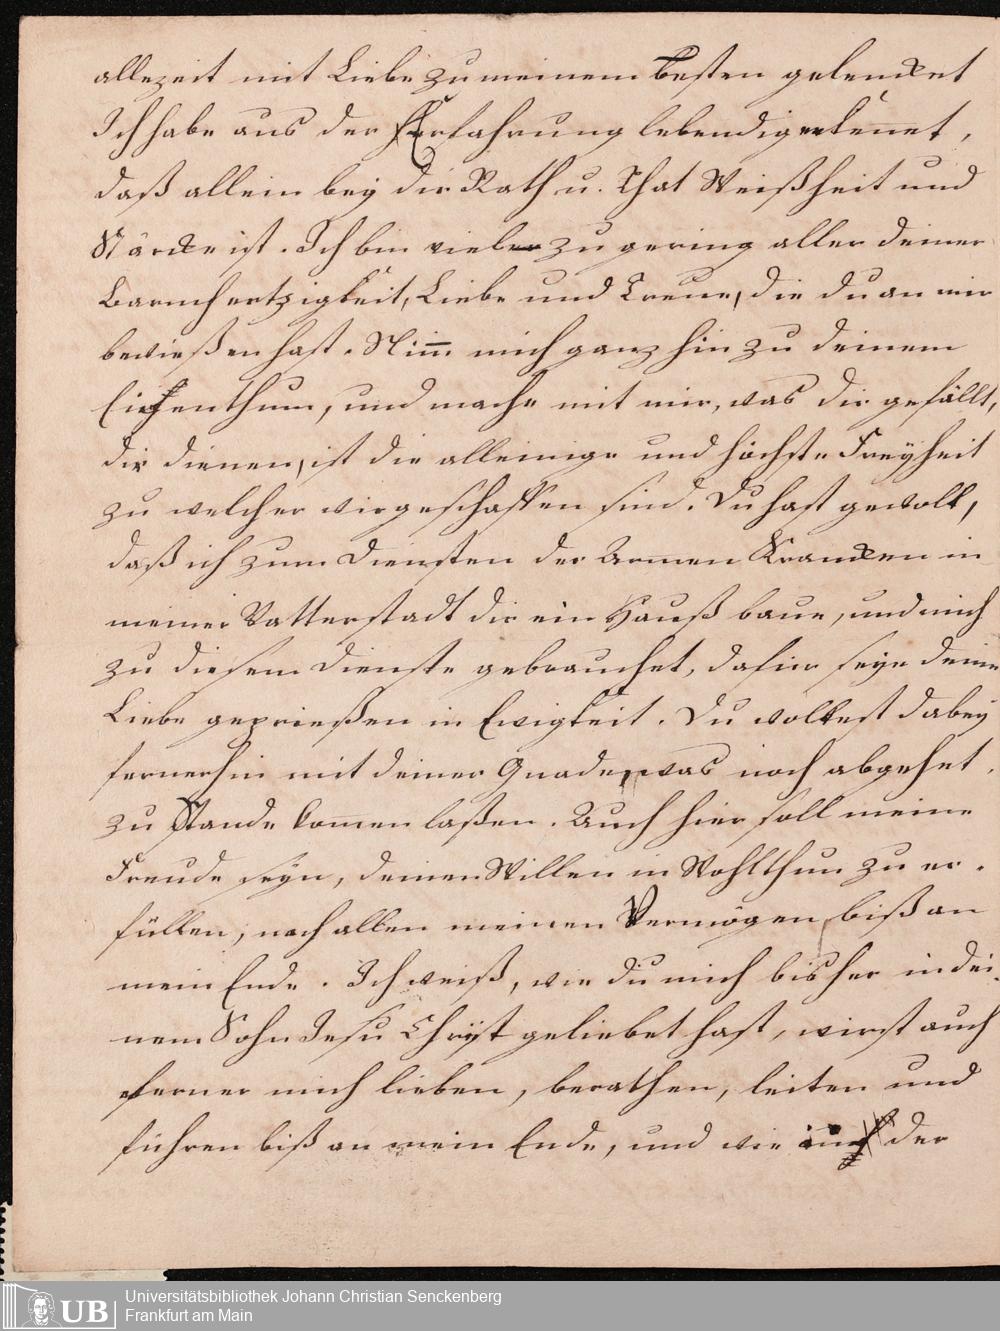 allezeit mit Liebe zu meinem Besten gelencket
Ich habe aus der Erfahrung lebendig erkennet,
daß allein bey dir Rath u. That Weißheit und
Stärcke ist. Ich bin viel zu gering aller deiner
Barmhertzigkeit, Liebe und Treue, die du an mir
bewießen hast. Nimm mich ganz hin zu deinem
Eigenthum, und mache mit mir, was dir gefällt,
dir dienen, ist die alleinige und höchste Freyheit
zu welcher wir geschaffen sind. Du hast gewolt,
daß ich zum Diensten der Armen Krancken in
meiner Vatterstadt dir ein Hauß baue, und mich
zu diesem Dienste gebrauchet, dafür seye deine
Liebe geprießen in Ewigkeit. Du wollest dabey
fernerhin mit deiner Gnade, was noch abgehet,
zu Stande kommen laßen. Auch hier soll meine
Freude seyn, deinen Willen in Wohlthun zu er-
füllen, nach allen meinen Vermögen, biß an
mein Ende. Ich weiß, wie du mich bisher in dei-
nem Sohn Jesu Christ geliebet hast, wirst auch
ferner mich lieben, berathen, leiten und
führen biß an mein Ende, und wie der
UB
Universitätsbibliothek Johann Christian Senckenberg
Frankfurt am Main